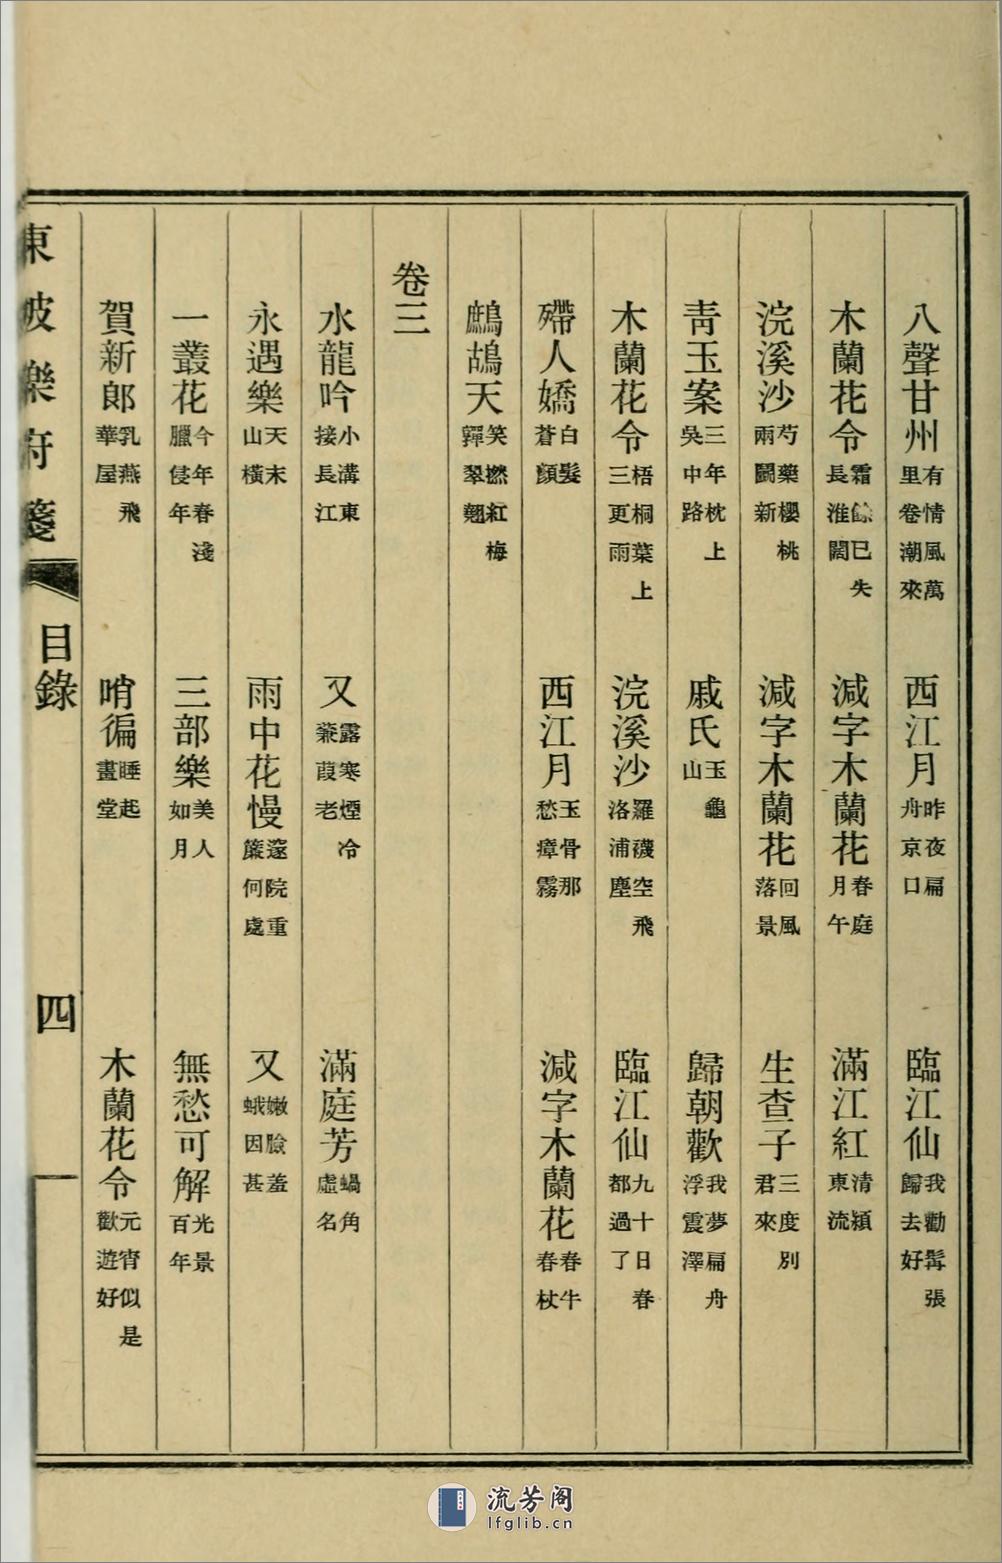 八聲甘州有情風萬里卷潮來 西江月昨夜扁舟京口 臨江仙我勸髯張歸去好
木蘭花令霜餘已失長淮闊 減字木蘭花春庭月午 滿江紅清潁東流
浣溪沙芍藥櫻桃兩鬬新 減字木蘭花回風落景 生查子三度別君來
靑玉案三年枕上吳中路 戚氏玉龜山 歸朝歡我夢扁舟浮震澤
木蘭花令梧桐葉上三更雨 浣溪沙羅襪空飛洛浦塵 臨江仙九十日春都過了
殢人嬌白髮蒼顏 西江月玉骨那愁瘴霧 減字木蘭花春牛春杖
鷓鴣天笑撚紅梅嚲翠翹
卷三
水龍吟小溝東接長江 又露寒煙冷蒹葭老 滿庭芳蝸角虛名
永遇樂天末山橫 雨中花慢邃院重簾何處 又嫩臉羞蛾因甚
一叢花今年春淺臘侵年 三部樂美人如月 無愁可解光景百年
賀新郎乳燕飛華屋 哨徧睡起畫堂 木蘭花令元宵似是歡遊好
東坡樂府箋 目錄 四
流芳阁
lfglib.cn